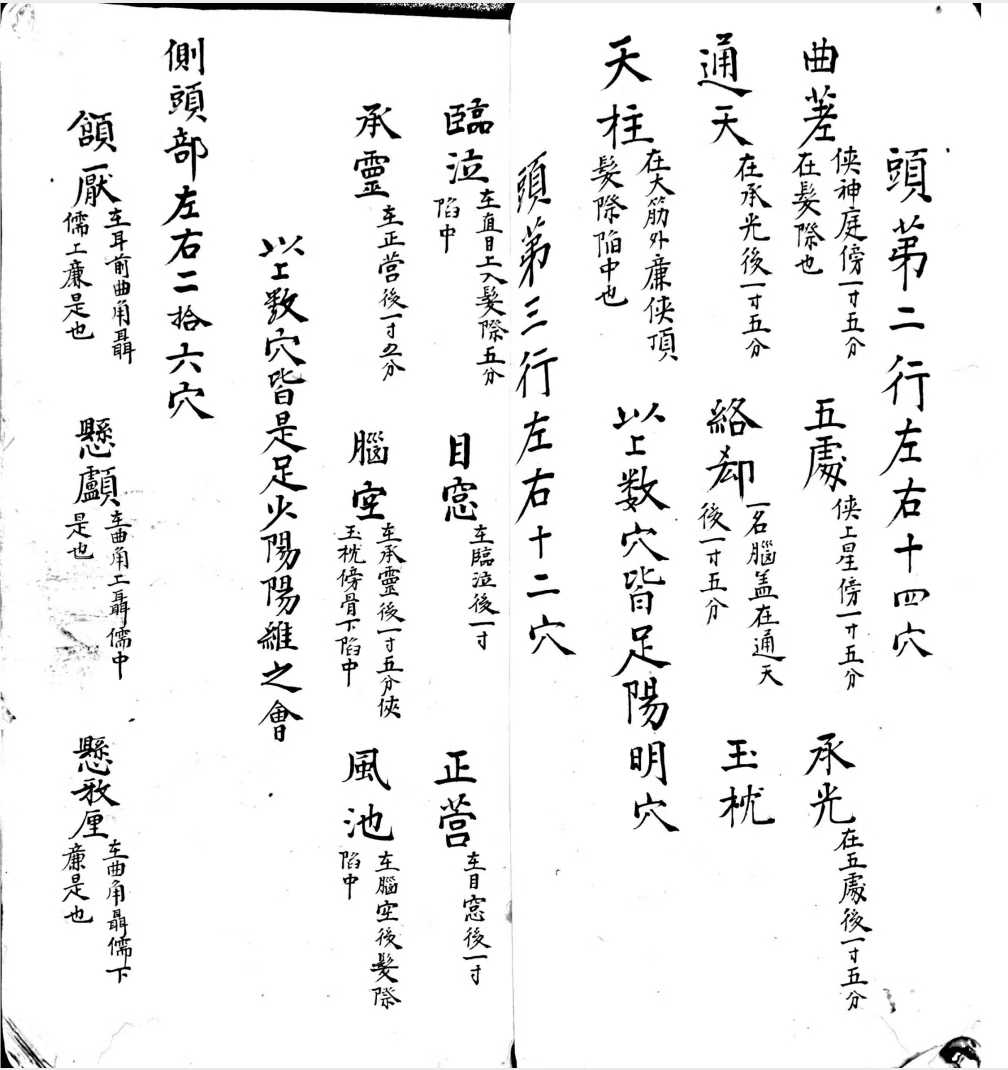 頭第二行左右十四穴
曲差 侠神庭傍一寸五分在髮際也 五處 侠上星傍一寸五分 承光 在五處後一寸五分
通天 在承光後一寸五分 絡却 一名腦盖在通天後一寸五分 玉枕
天柱 在大筋外廉侠項髮際陥中也 以上数穴皆足陽明穴
頭第三行左右十二穴
臨泣 在直目上入髮際五分陥中 目窓 在臨泣後一寸 正营 在目窓後一寸
承靈 在正营後一寸五分 腦空 在承靈後一寸五分侠玉枕傍骨下陥中 風池 在腦空後髮際陥中
以上数穴皆是足少陽陽維之會
側頭部左右二拾六穴
頷厭 在耳前曲角聶儒上廉是也 懸顱 在曲角上聶儒中是也 懸厘 在曲角聶儒下廉是也